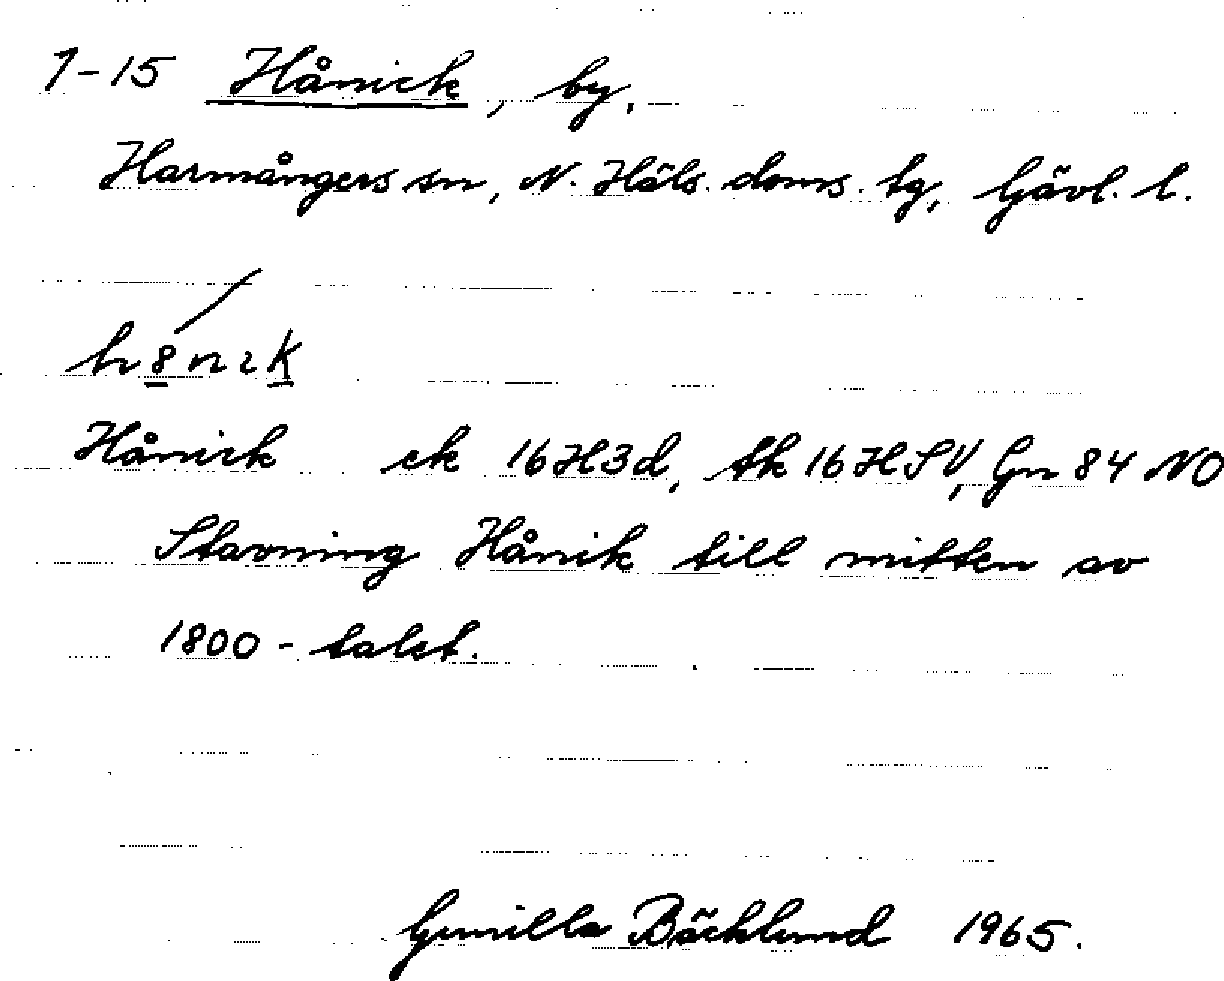 1-15 Hånick, by.
Harmångers sn, N. Häls. doms. tg, Gävl. l.
h8nık
Hånick ek 16H3d, tk 16HSV, Gn 84 NO
Stavning Hånik till mitten av
1800-talet.
Gunilla Bäcklund 1965.